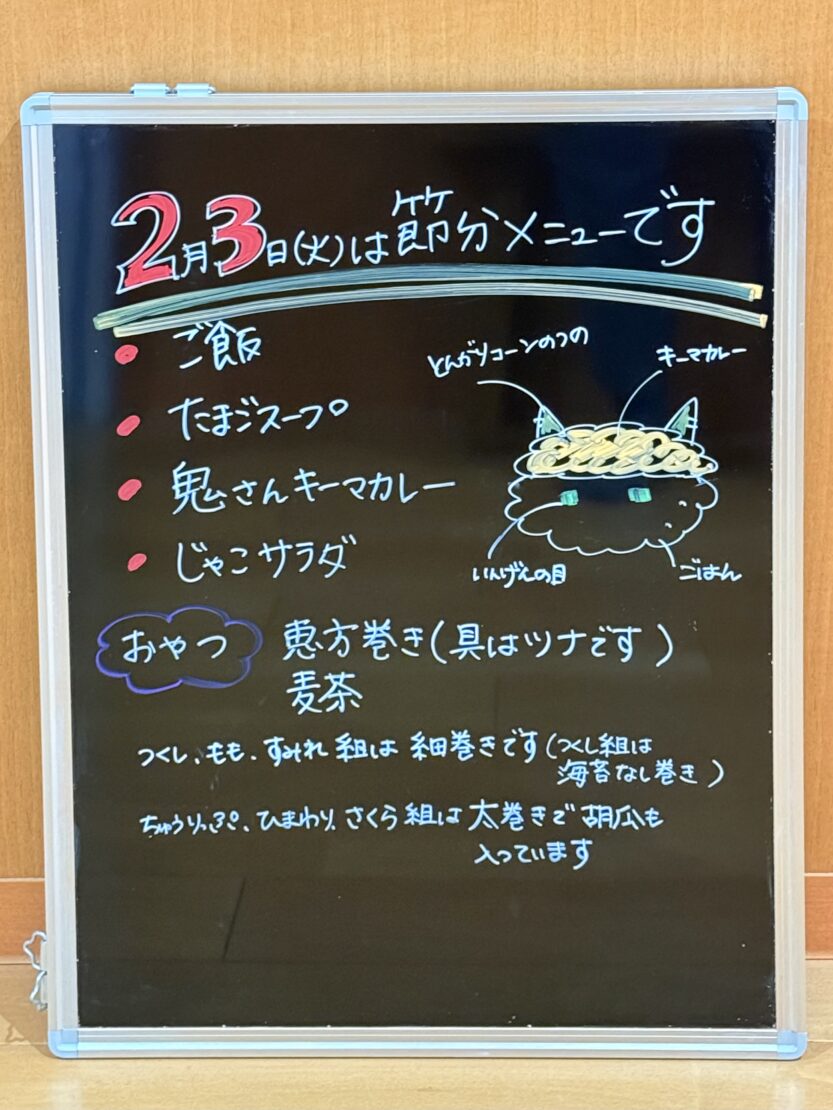 2月3日(火)は節分メニューです
・ご飯
・たまごスープ
・鬼さんキーマカレー
・じゃこサラダ
とんがりコーンのつの
キーマカレー
いんげんの目
ごはん
おやつ 恵方巻き(具はツナです)
麦茶
つくし、もも、すみれ組は細巻きです(つくし組は
海苔なし巻き)
ちゅうりっぷ、ひまわり、さくら組は太巻きで胡瓜も
入っています